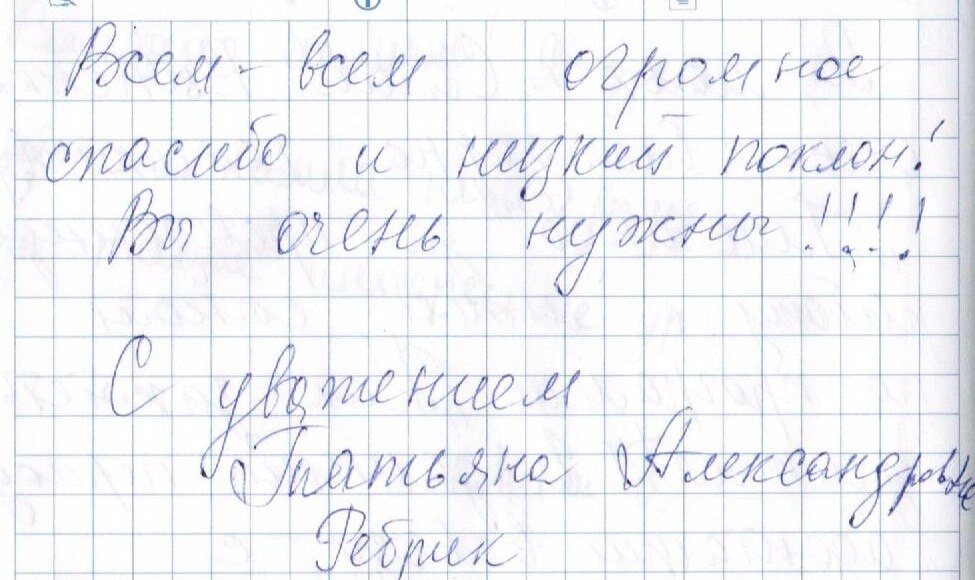 Всем-всем огромное
спасибо и низкий поклон!
Вы очень нужны!!!!
С уважением
Татьяна Александровна
Ребрик